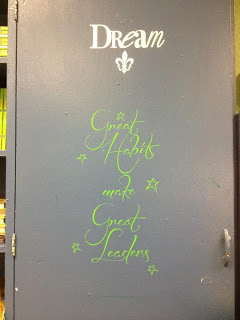 DReam
Great
Habits
make
Great
Leaders